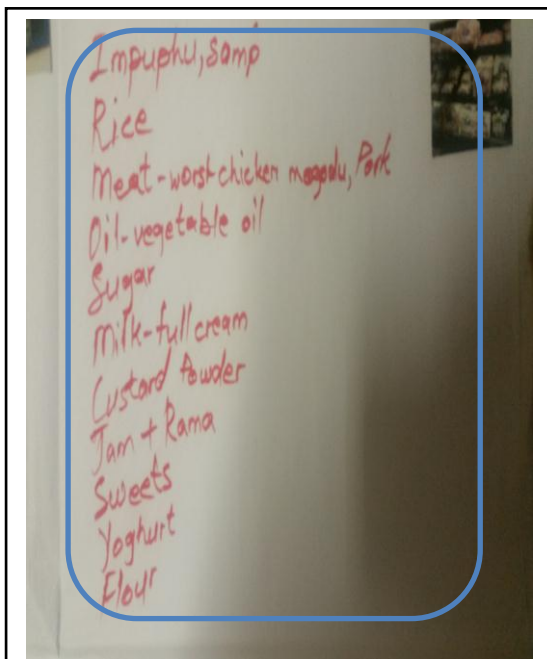 Impuphu, samp
Rice
Meat-worst chicken mogodu, Pork
Oil-vegetable oil
Sugar
Milk-full cream
Custard Powder
Jam + Rama
Sweets
Yoghurt
Flour